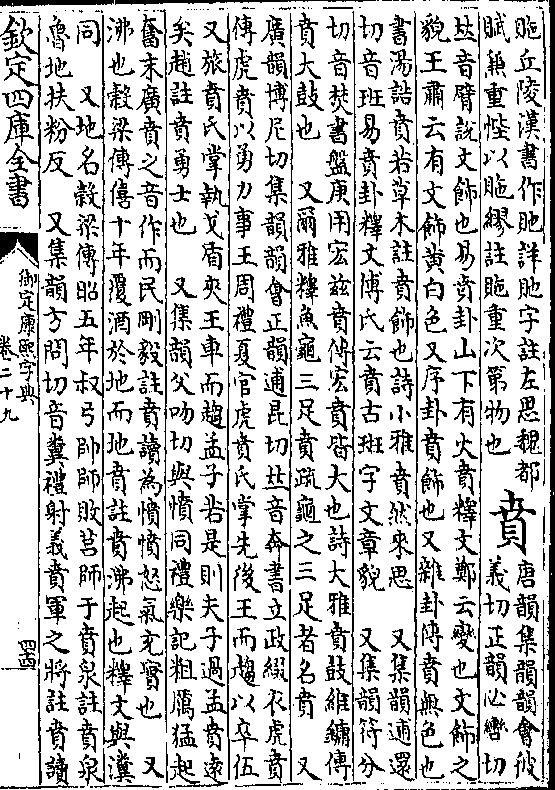 貤丘陵漢書作貤詳貤字註左思魏都
賦兼重悂以貤繆註貤重次第物也
賁
唐韻集韻韻會彼
義切正韻必轡切
𠀤音臂說文飾也易賁卦山下有火賁釋文鄭云變也文飾之
貌王肅云有文飾黃白色又序卦賁飾也又雜卦傳賁無色也
書湯誥賁若草木註賁飾也詩小雅賁然來思　又集韻逋還
切音班易賁卦釋文傅氏云賁古班字文章貌　又集韻符分
切音焚書盤庚用宏茲賁傳宏賁皆大也詩大雅賁鼓維鏞傳
賁大鼓也　又爾雅釋魚龜三足賁疏龜之三足者名賁　又
廣韻博尼切集韻韻會正韻逋昆切𠀤音奔書立政綴衣虎賁
傳虎賁以勇力事王周禮夏官虎賁氏掌先後王而趨以卒伍
又旅賁氏掌執戈盾夾王車而趨孟子若是則夫子過孟賁遠
矣趙註賁勇士也　又集韻父吻切與憤同禮樂記粗厲猛起
奮末廣賁之音作而民剛毅註賁讀為憤憤怒氣充實也　又
沸也穀梁傳僖十年覆酒於地而地賁註賁沸起也釋文與濆
同　又地名穀梁傳昭五年叔弓帥師敗莒師于賁泉註賁泉
魯地扶粉反　又集韻方問切音糞禮射義賁軍之將註賁讀
欽定四庫全書
御定康熙字典
卷二十九
四四